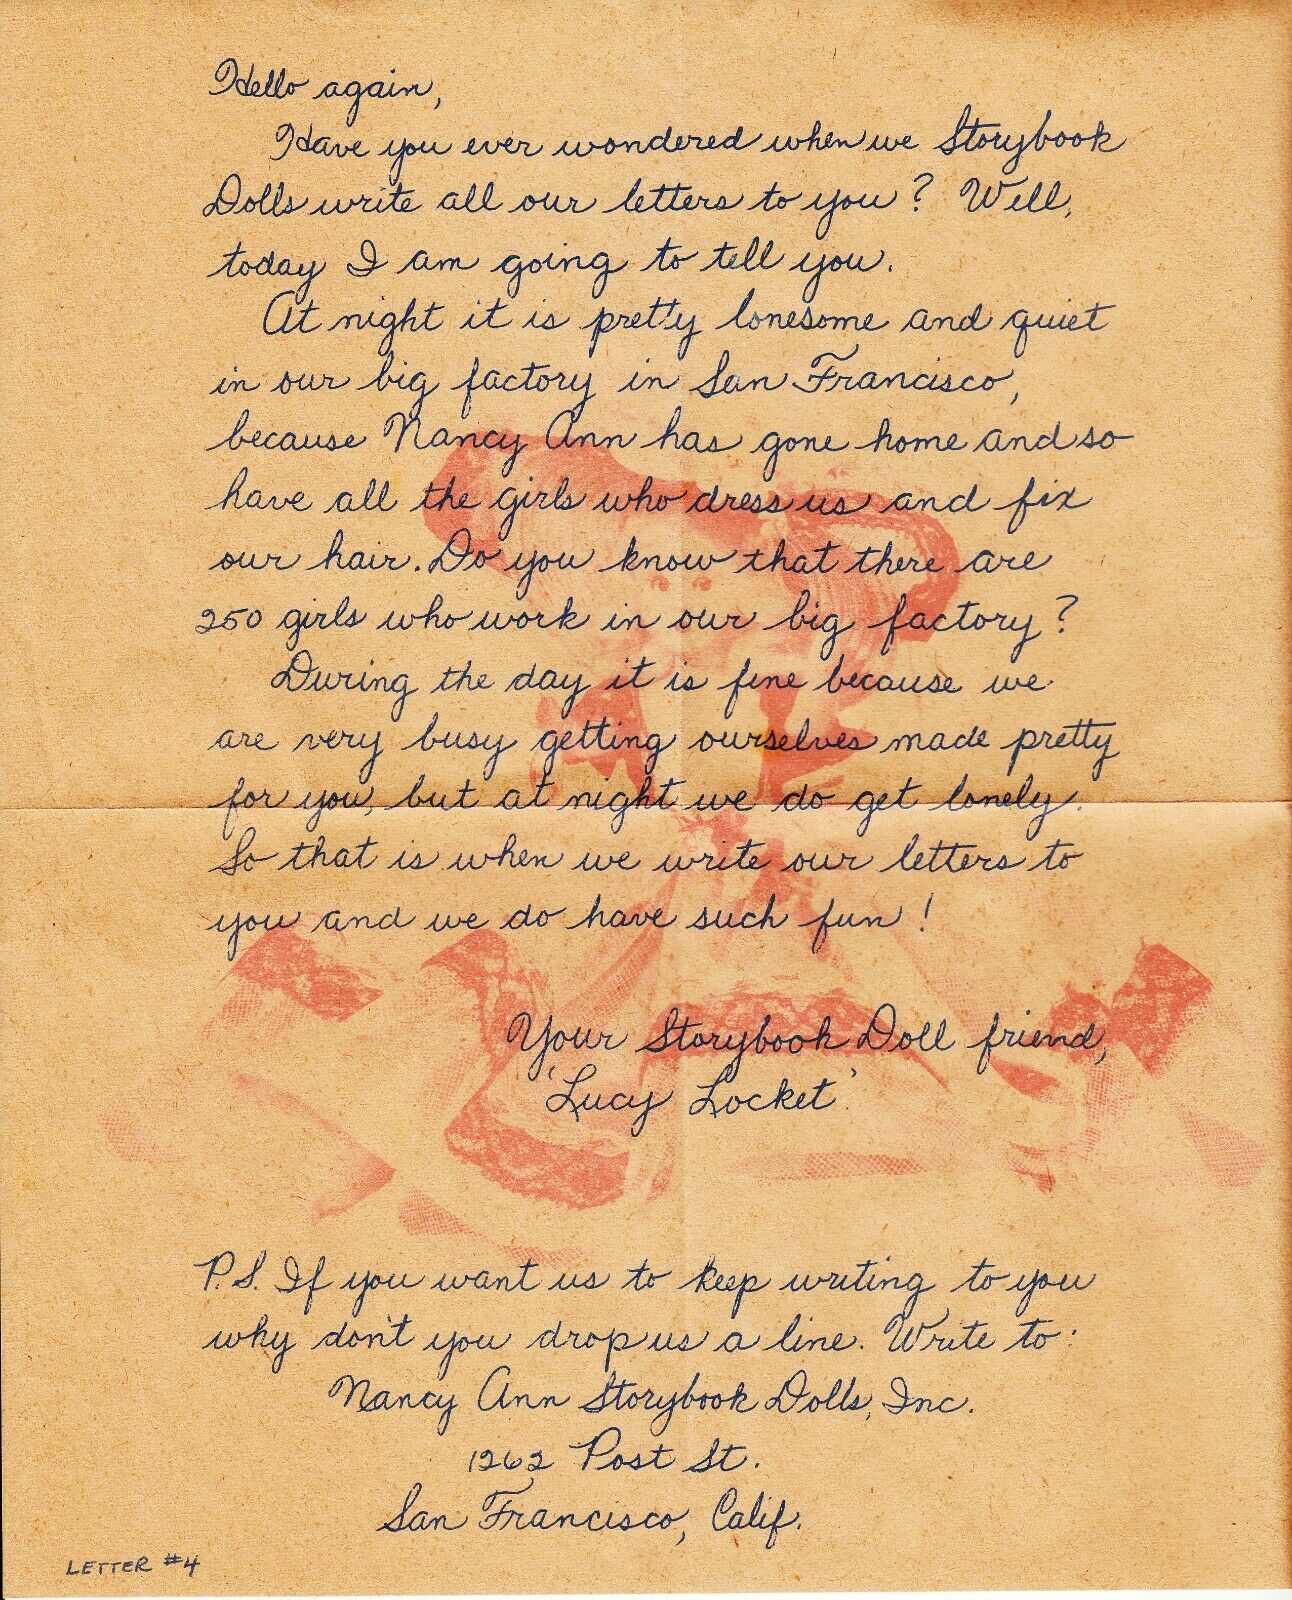 Hello again,
Have you ever wondered when we Storybook
Dolls write all our letters to you? Well,
today I am going to tell you.
At night it is pretty lonesome and quiet
in our big factory in San Francisco,
because Nancy Ann has gone home and so
have all the girls who dress us and fix
our hair. Do you know that there are
250 girls who work in our big factory?
During the day it is fine because we
are very busy getting ourselves made pretty
for you, but at night we do get lonely.
So that is when we write our letters to
you and we do have such fun!
Your Storybook Doll friend,
'Lucy Locket'
P.S. If you want us to keep writing to you
why don't you drop us a line. Write to:
Nancy Ann Storybook Dolls, Inc.
1262 Post St.
San Francisco, Calif.
LETTER #4